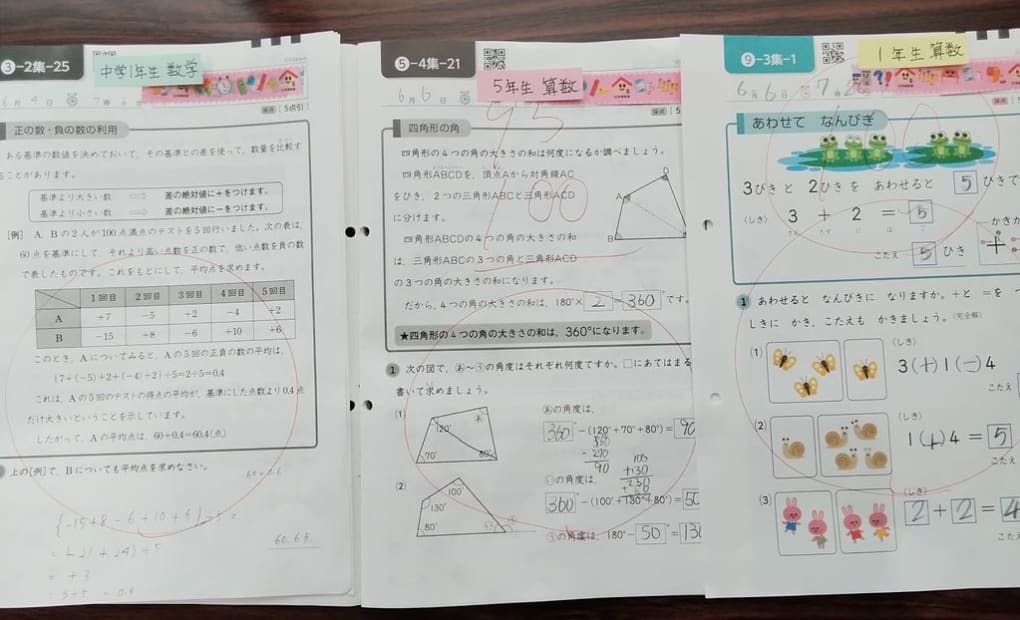 3-2集-25
中学1年生 数学
採点 5点引
正の数・負の数の利用
ある基準の数値を決めておいて，その基準との差を使って，数量を比較す
ることがあります。
基準より大きい数 ⇨ 差の絶対値に＋をつけます。
基準より小さい数 ⇨ 差の絶対値に－をつけます。
[例] A，Bの2人が100点満点のテストを5回行いました。次の表は，
60点を基準にして，それより高い点数を正の数で，低い点数を負の数
で表したものです。これをもとにして，平均点を求めます。
1回目 2回目 3回目 4回目 5回目
A +7 −5 +2 −4 +2
B −15 +8 −6 +10 +6
このとき，Aについてみると，Aの5回の正負の数の平均は，
{7+(−5)+2+(−4)+2}÷5=2÷5=0.4
これは，Aの5回のテストの得点の平均が，基準にした点数より0.4点
だけ大きいということを示しています。
したがって，Aの平均点は，60+0.4=60.4(点)
上の[例]で，Bについても平均点を求めなさい。
60+0.6
{-15+8-6+10+6}÷5=
=(-21+24)÷5
=+3
60.6点
5-4集-21
5年生 算数
6月6日
採点
95
100
四角形の角
四角形の4つの角の大きさの和は何度になるか調べましょう。
四角形ABCDを，頂点Aから対角線AC
をひき，2つの三角形ABCと三角形ACD
に分けます。
四角形ABCDの4つの角の大きさの和
は，三角形ABCの3つの角と三角形ACD
の3つの角の大きさの和になります。
だから，4つの角の大きさの和は，180°×2=360°です。
A
B
D
★四角形の4つの角の大きさの和は，360°になります。
1 次の図で，あ〜うの角度はそれぞれ何度ですか。□にあてはまる
書いて求めましょう。
(1)
120°
あ
70°
80°
あの角度は，
360°−(120°+70°+80°)=90
360
-270
90
100
+130
(2)
100°
130°
80°
いの角度は，
360°−(100°+130°+80°)=50
うの角度は，180°−50°=130
9-3集-1
1年生 算数
6月6日
採点
あわせて なんびき
3びきと 2ひきを あわせると 5ひきで
(しき)
3 + 2 = 5
こたえ 5ひき
かきか
1 あわせると なんびきに なりますか。＋と ＝を つ
しきに かき，こたえも かきましょう。(完全解)
(1)
(しき)
3(+)1(=)4
こたえ
(2)
(しき)
1(+)4=5
こたえ
(3)
(しき)
2+2=4
こたえ